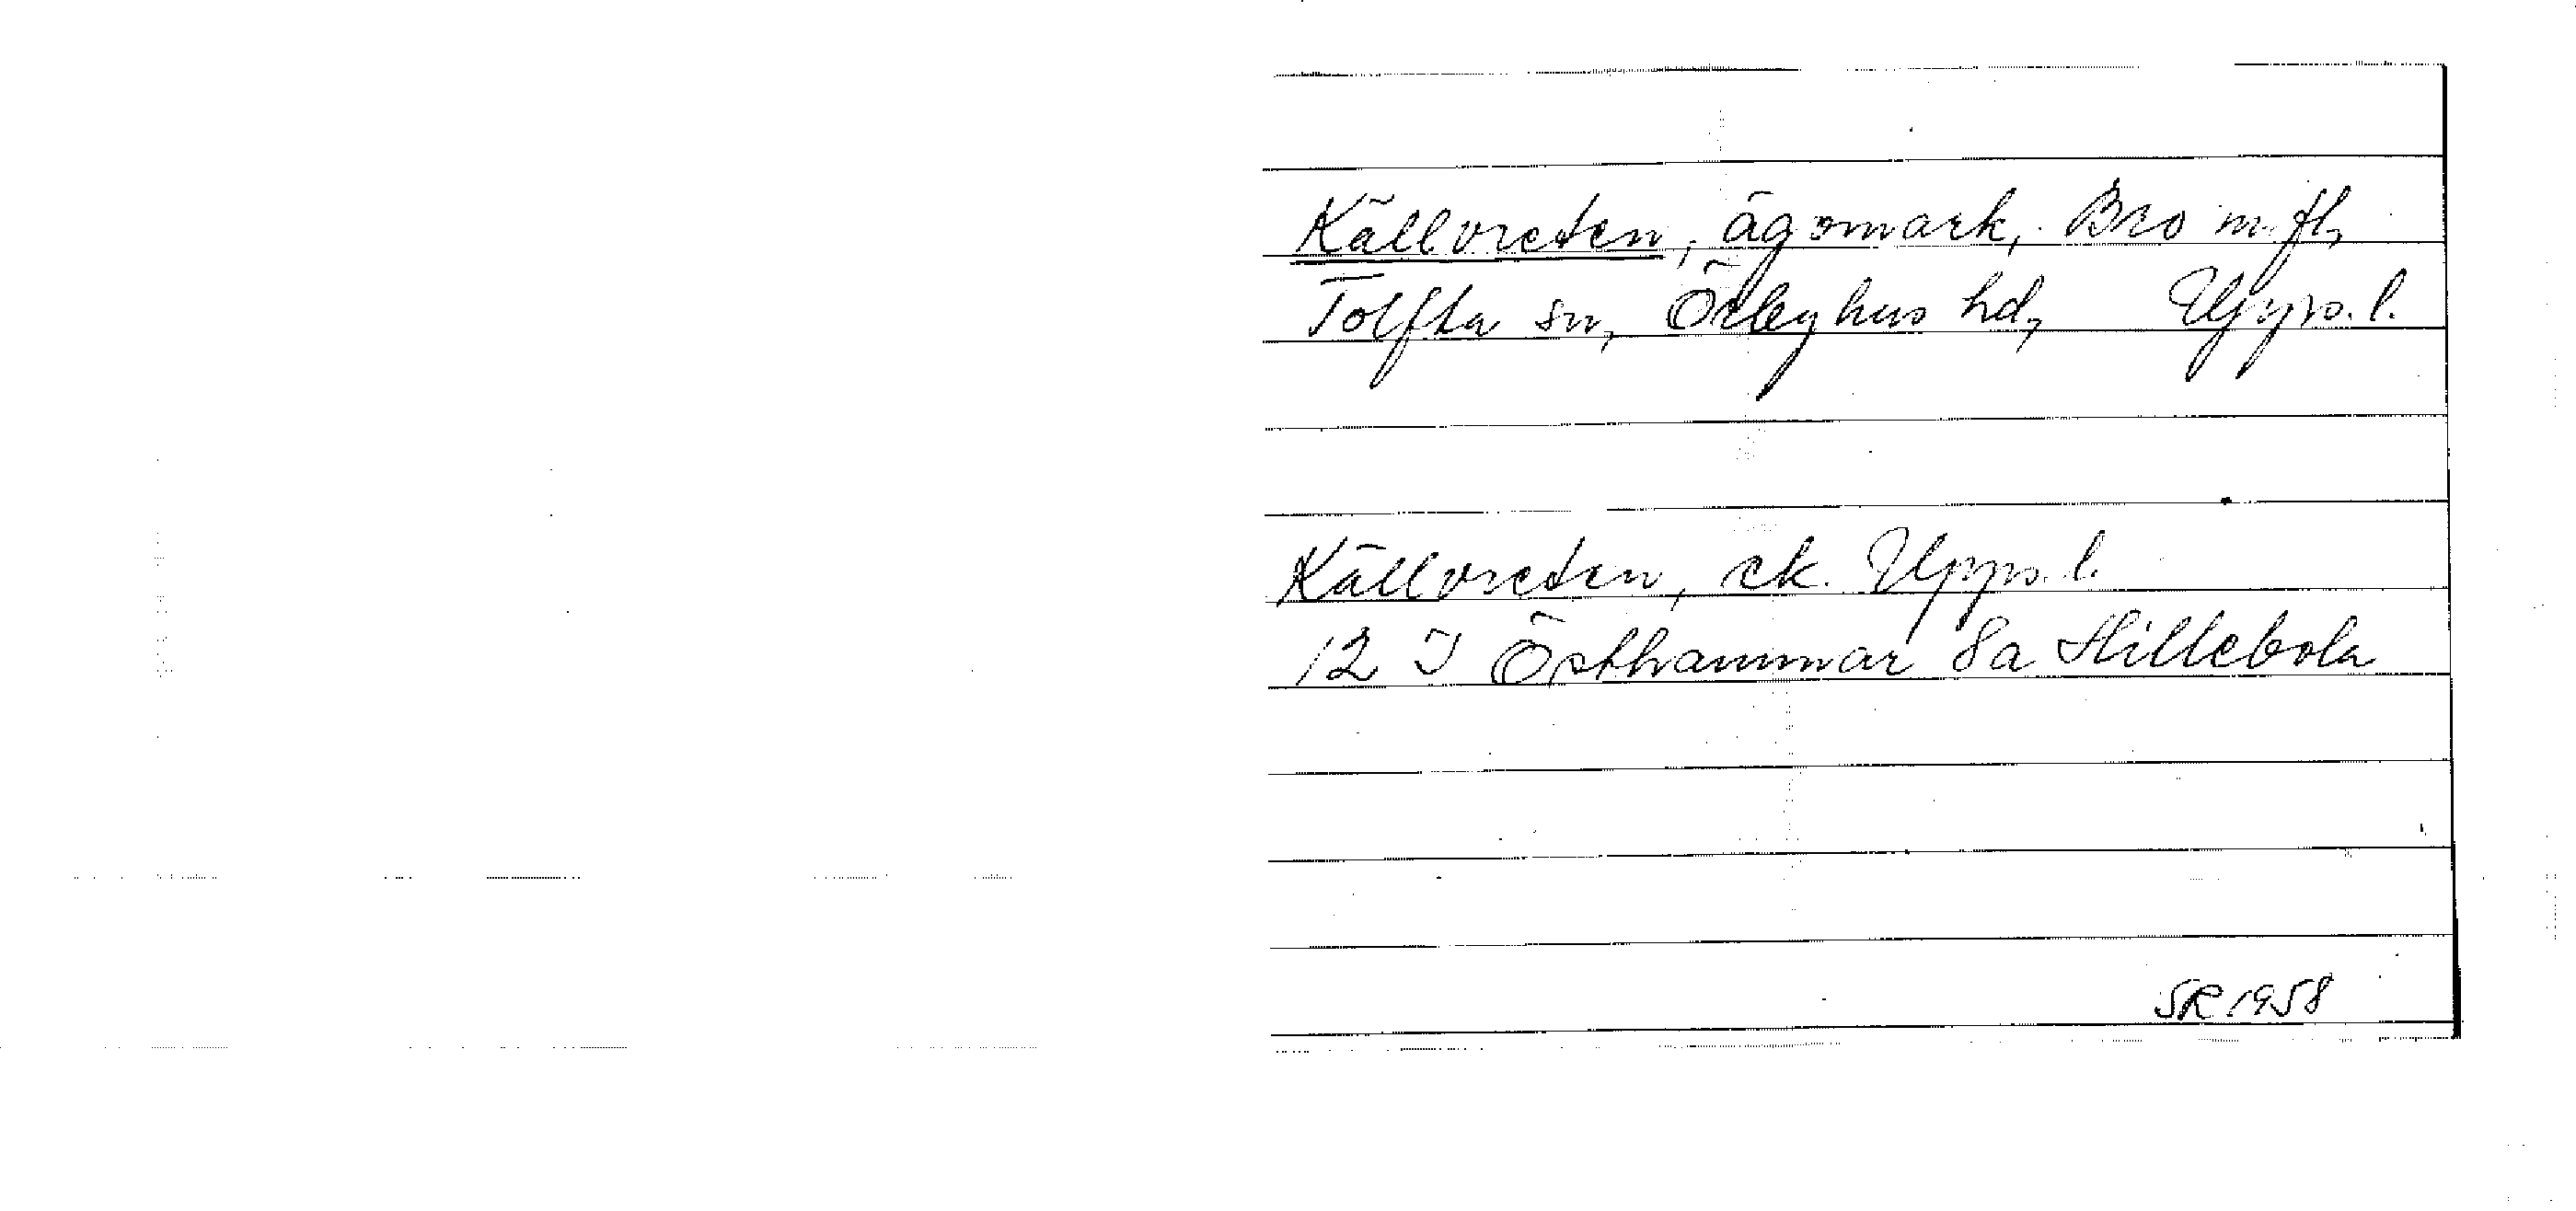 Källvreten, ägomark, Bro m.fl.,
Tolfta sn, Örbyhus hd, Upps. l.
Källvreten, ek. Upps. l.
12 I Östhammar 8a Hillebola
SR 1958